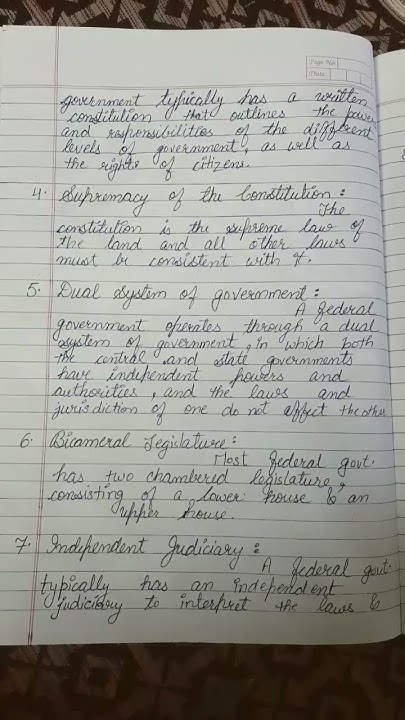 Page No.
Date
government typically has a written
constitution that outlines the power
and responsibilities of the different
levels of government, as well as
the rights of citizens.
4. Supremacy of the Constitution :
The
constitution is the supreme law of
the land and all other laws
must be consistent with it.
5. Dual system of government :
A federal
government operates through a dual
system of government, in which both
the central and state governments
have independent powers and
authorities, and the laws and
jurisdiction of one do not affect the other
6. Bicameral legislature :
Most federal govt.
has two chambered legislature,
consisting of a lower house & an
upper house.
7. Independent Judiciary :
A federal govt.
typically has an independent
judiciary to interpret the laws &